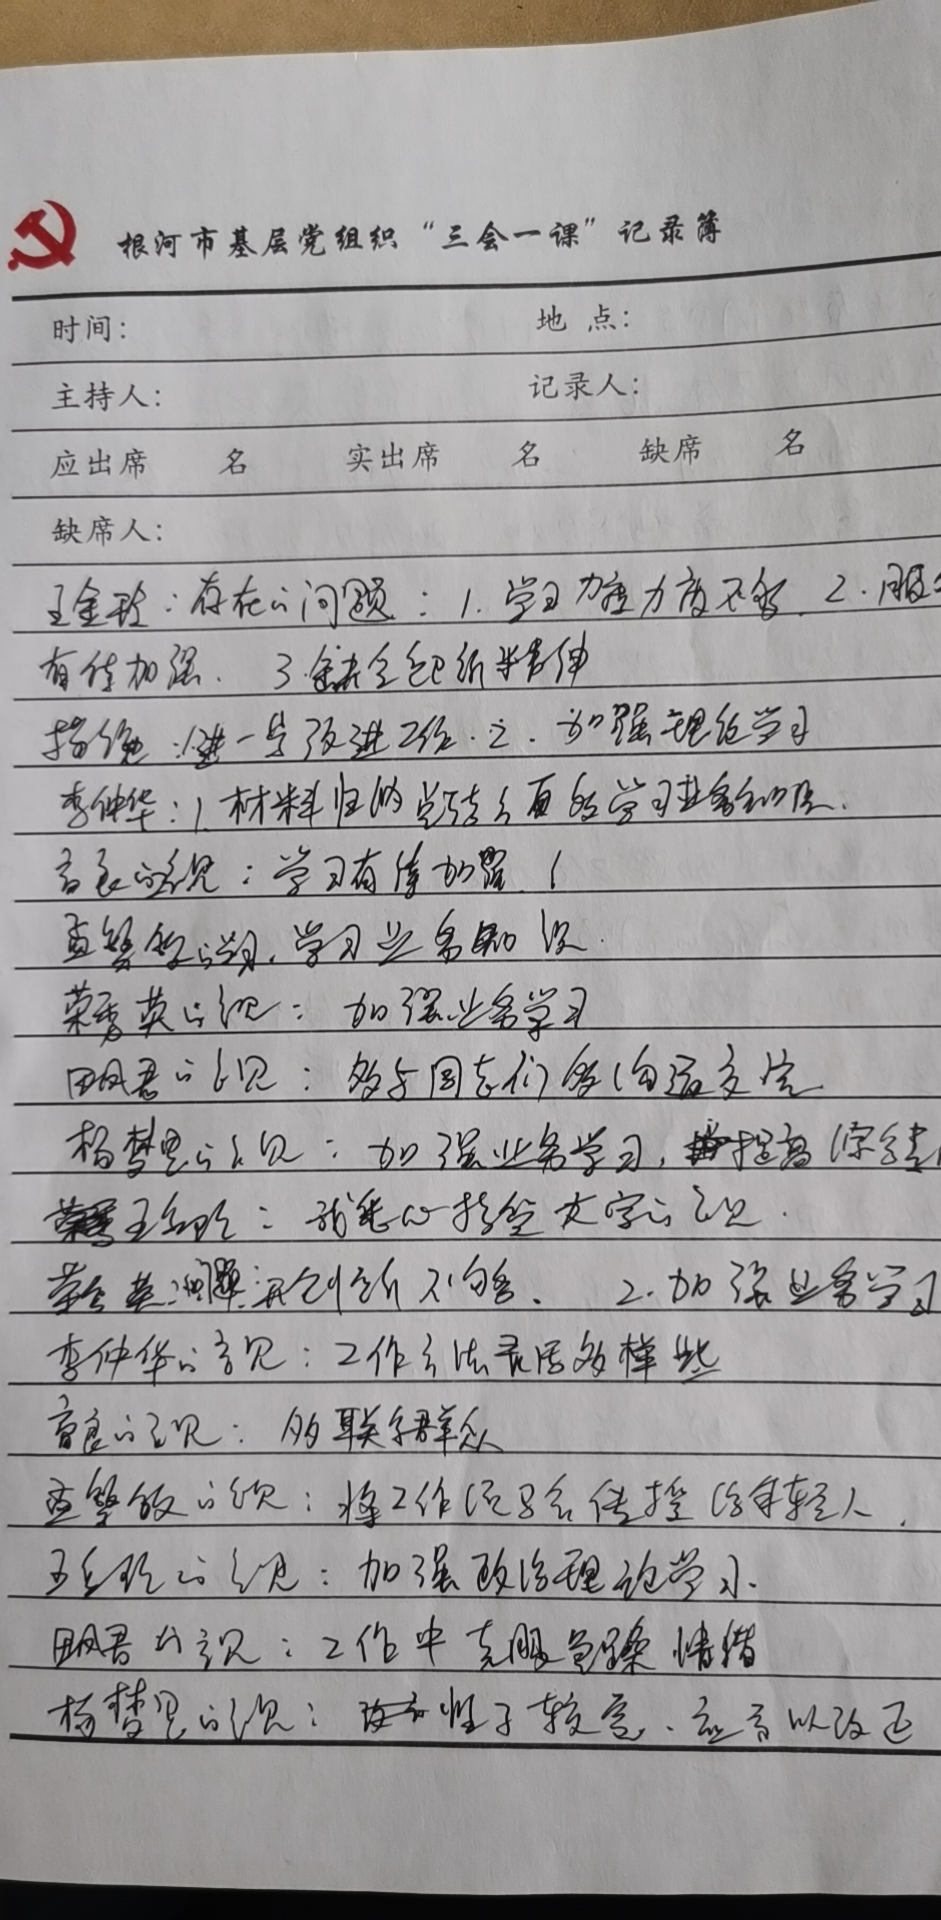 根河市基层党组织“三会一课”记录簿
时间： 地 点：
主持人： 记录人：
应出席 名 实出席 名 缺席 名
缺席人：
王金玲：存在的问题：1. 学习 力度不够. 2. 服
有待加强. 3. 缺乏创新精神
措施：1.进一步改进工作. 2. 加强理论学习
李仲华：1. 材料归 学习业务知识.
的意见：学习有待加强.
学习业务知识.
荣秀英的意见：加强业务学习
田凤君的意见：多与同志们多沟通交流
杨梦思的意见：加强业务学习，提高
王 玲：我虚心接受大家的意见.
创新不够. 2. 加强业务学习
李仲华的意见：工作方法灵活多样些
的意见：多联系群众
的意见：将工作 经 传授给年轻人.
王 玲的意见：加强政治理论学习.
田凤君的意见：工作中克服急躁情绪
杨梦思的意见：性子较急. 应 以改正